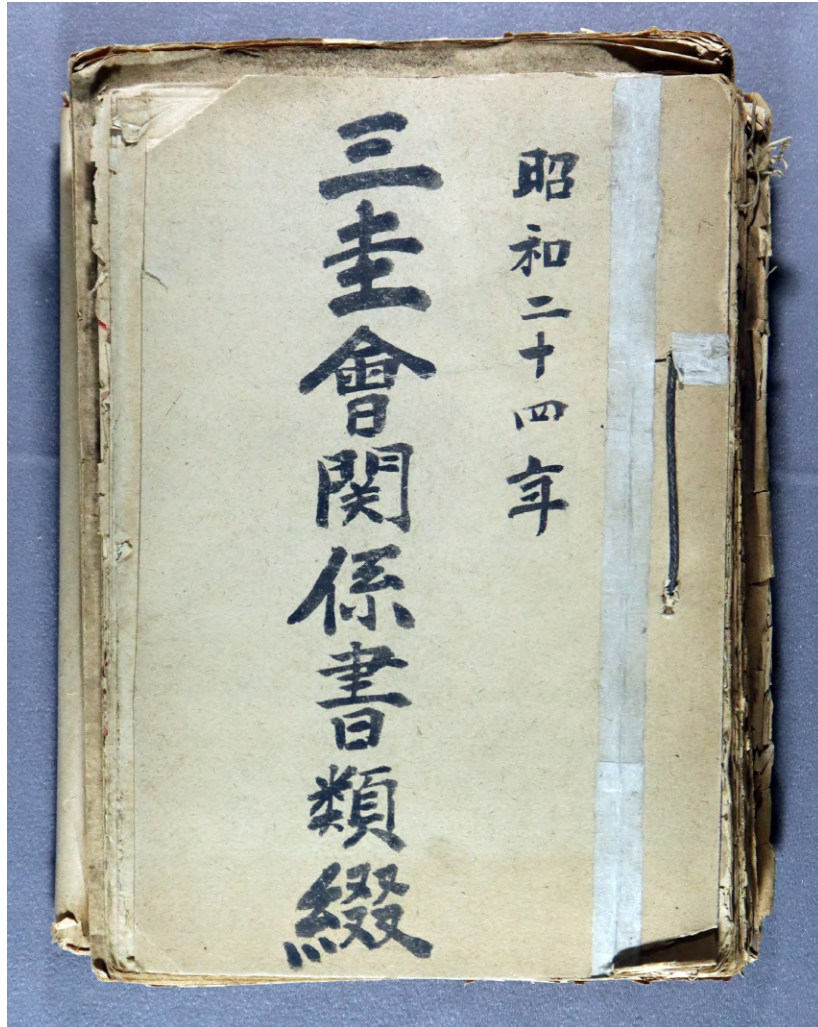 昭和二十四年
三圭會関係書類綴